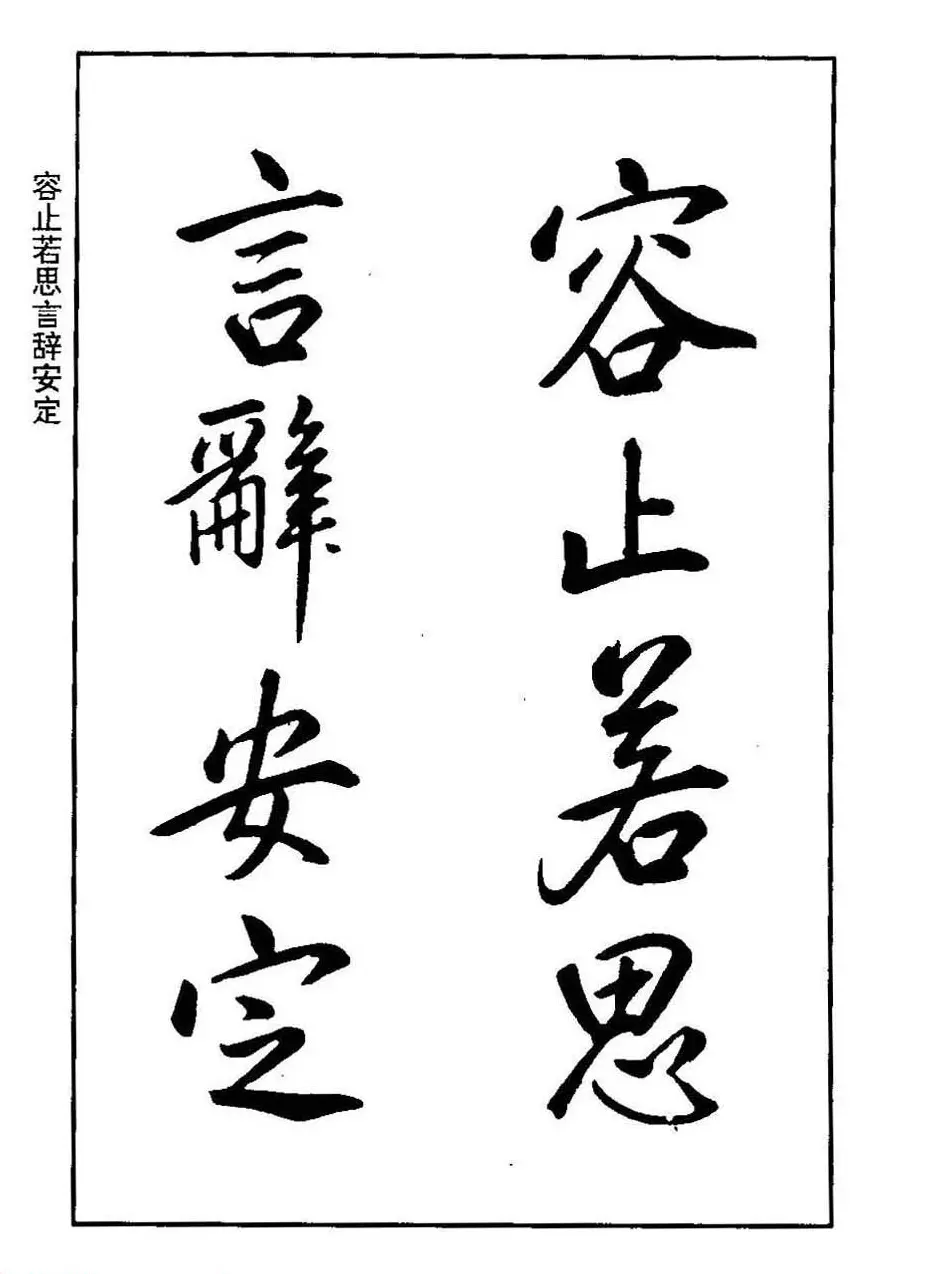 容止若思
言辭安定
容止若思言辞安定